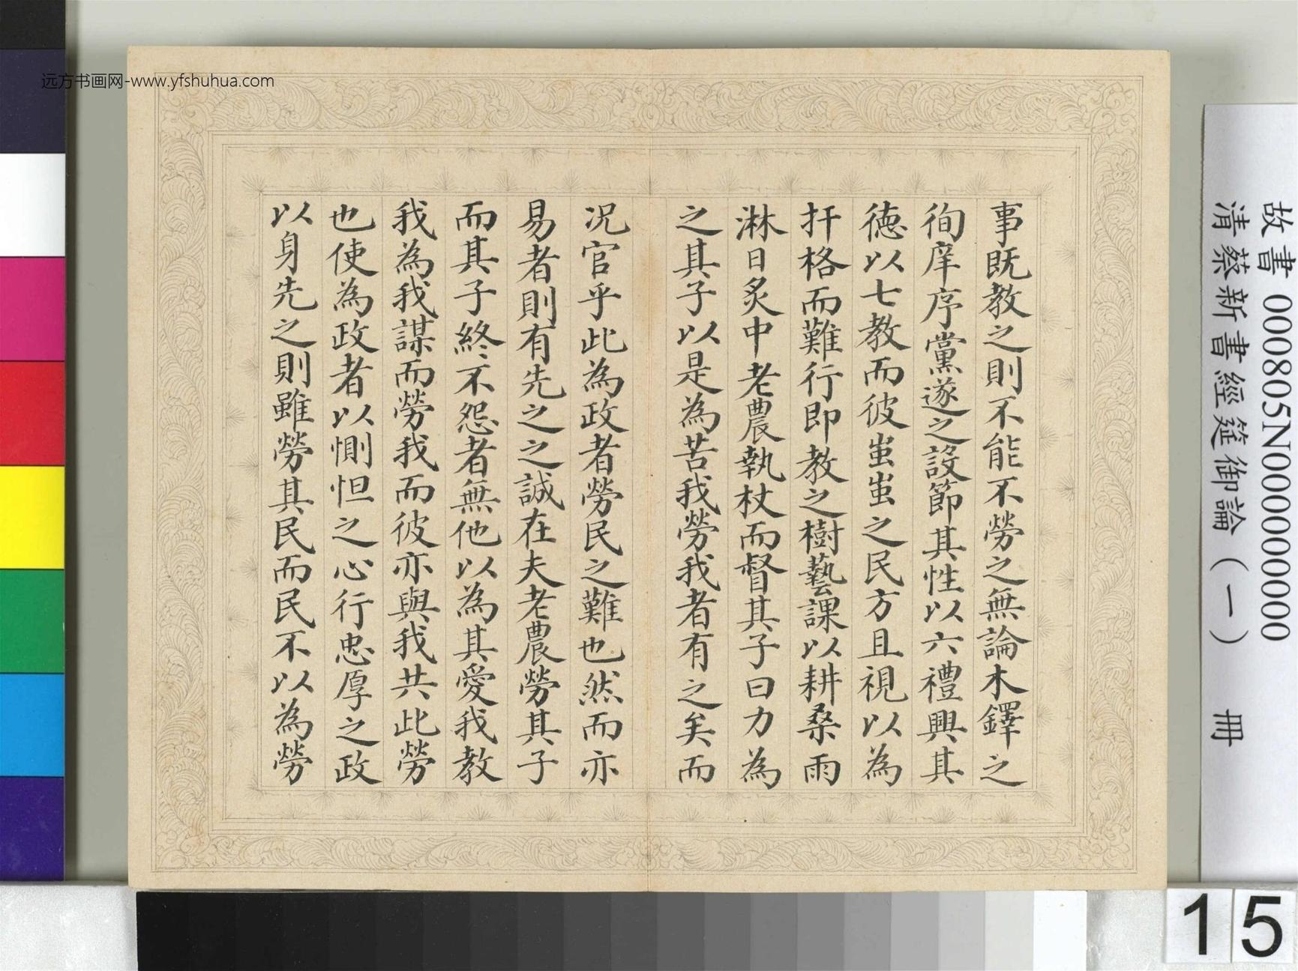 远方书画网-www.yfshuhua.com
事既教之則不能不勞之無論木鐸之
徇庠序黨遂之設節其性以六禮興其
德以七教而彼蚩蚩之民方且視以為
扞格而難行即教之樹藝課以耕桑雨
淋日炙中老農執杖而督其子曰力為
之其子以是為苦我勞我者有之矣而
況官乎此為政者勞民之難也然而亦
易者則有先之之誠在夫老農勞其子
而其子終不怨者無他以為其愛我教
我為我謀而勞我而彼亦與我共此勞
也使為政者以惻怛之心行忠厚之政
以身先之則雖勞其民而民不以為勞
故書 000805N000000000
清蔡新書經筵御論（一） 冊
15